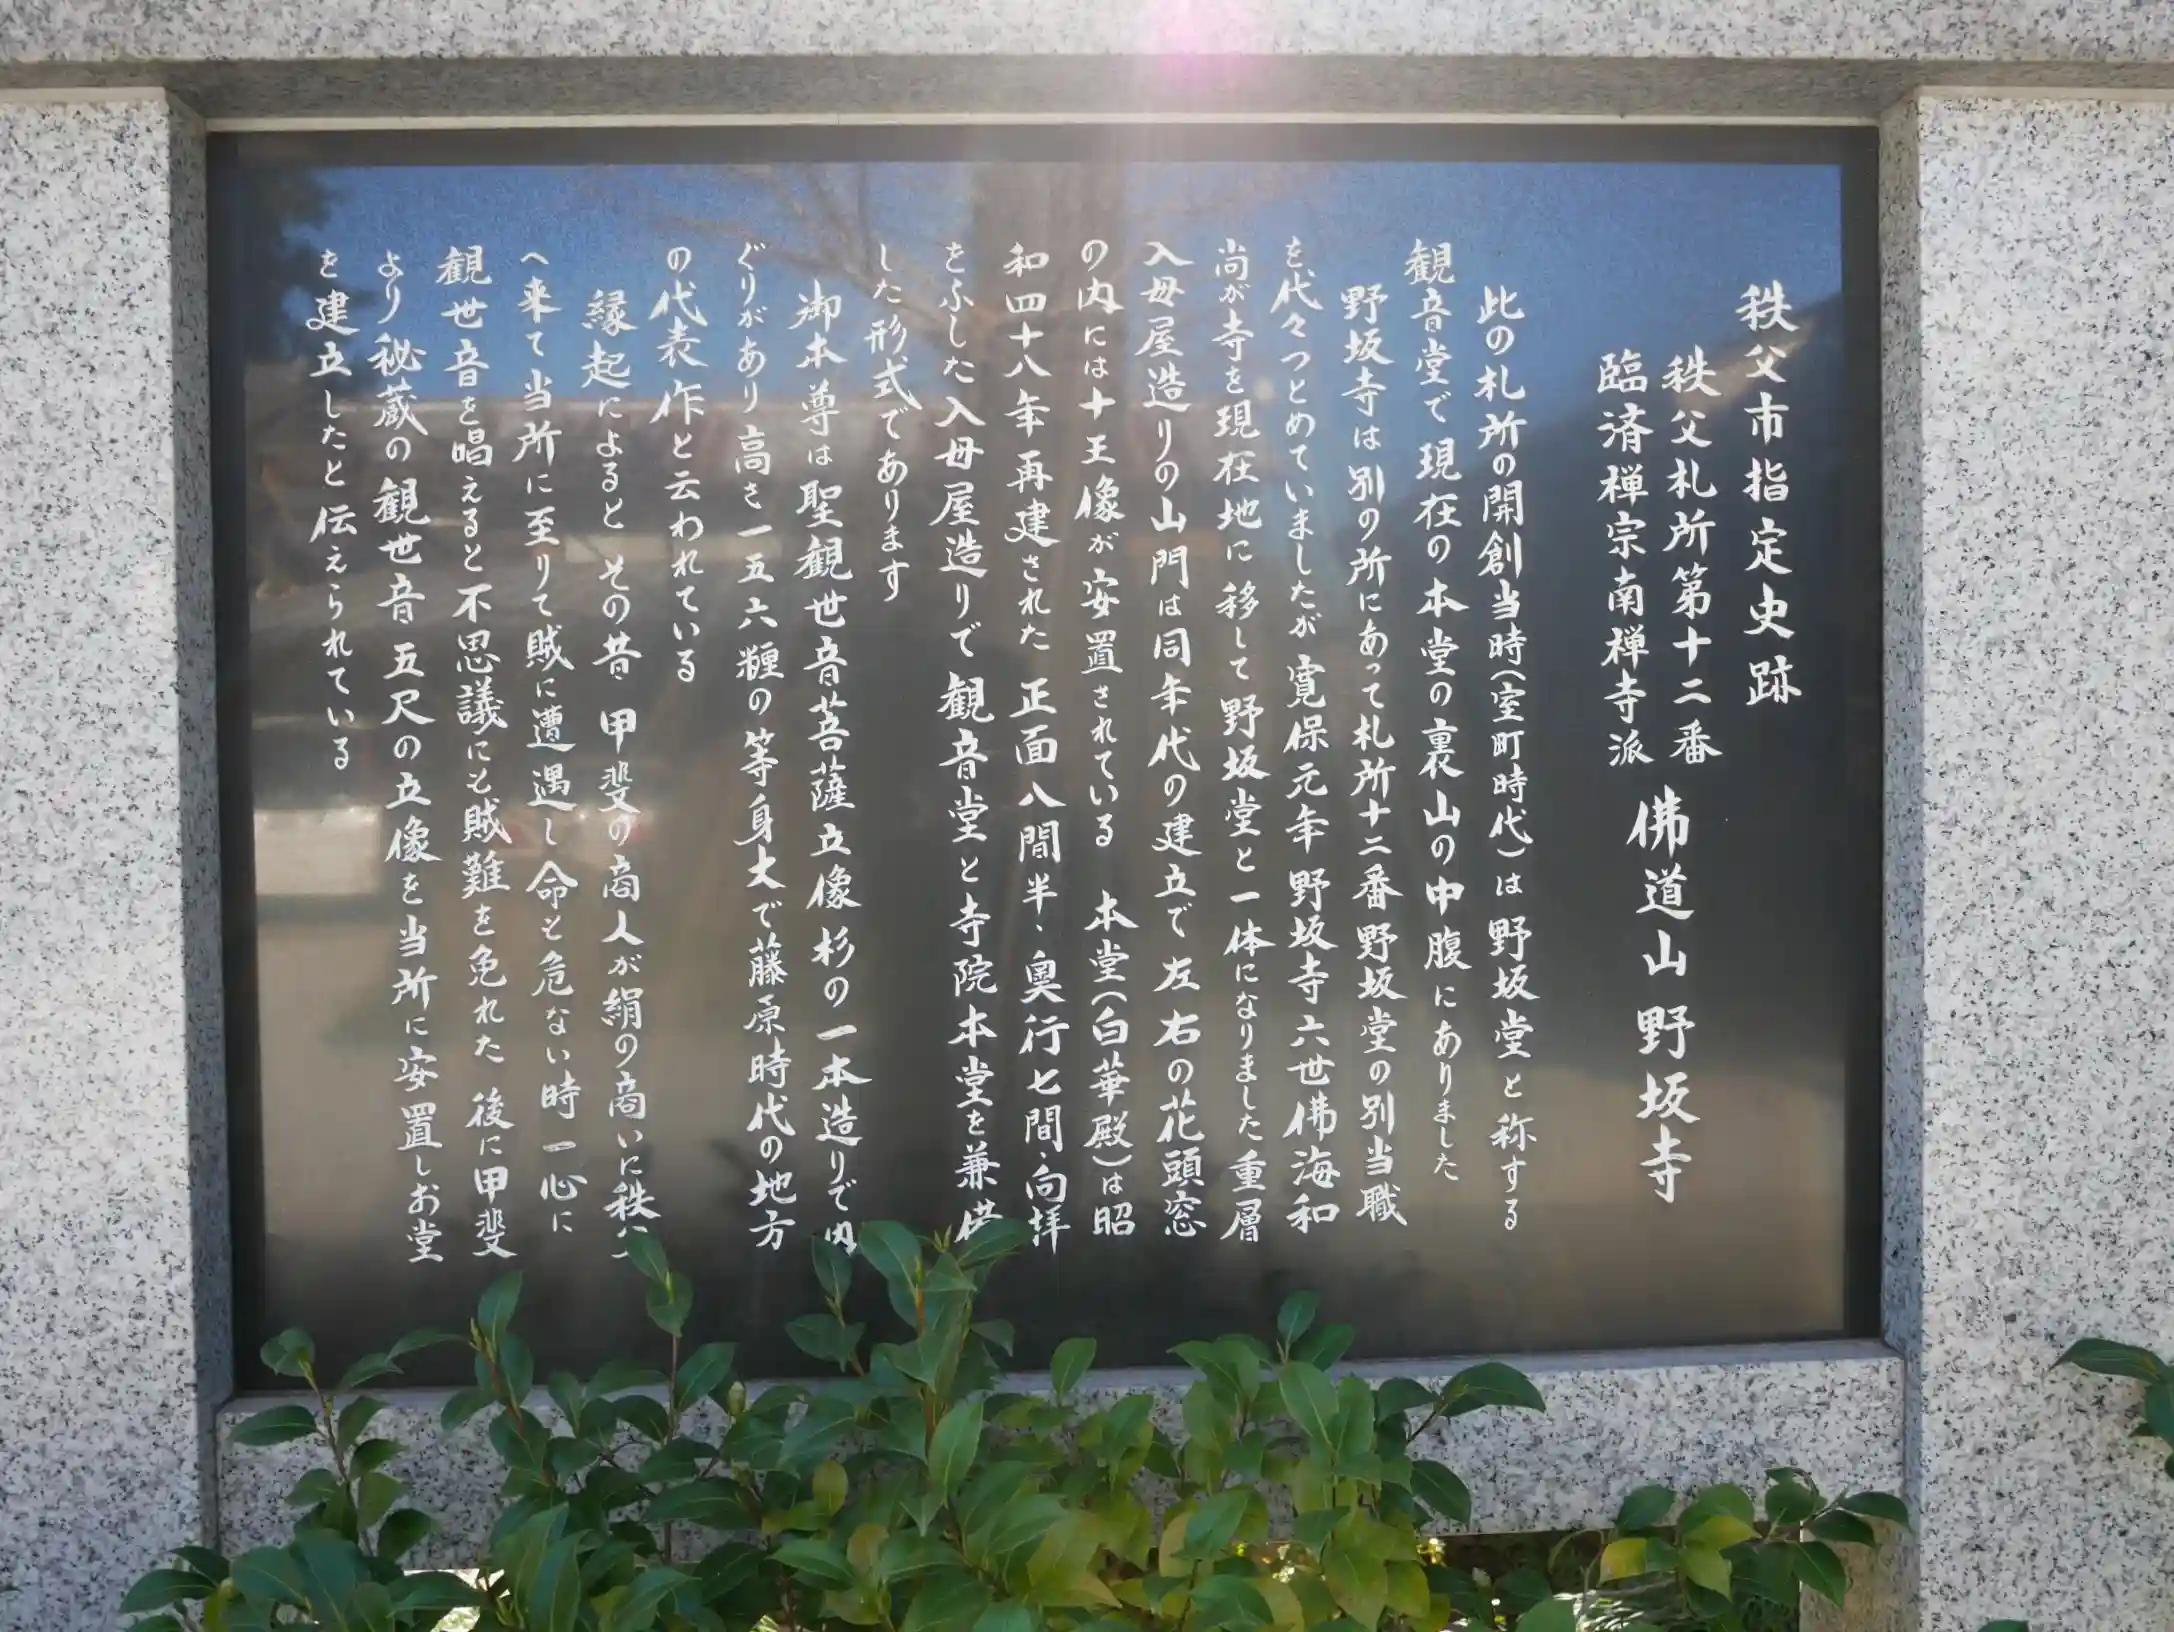 秩父市指定史跡
秩父札所第十二番
臨済禅宗南禅寺派
佛道山 野坂寺
此の札所の開創当時(室町時代)は野坂堂と称する
観音堂で現在の本堂の裏山の中腹にありました
野坂寺は別の所にあって札所十二番野坂堂の別当職
を代々つとめていましたが 寛保元年 野坂寺六世佛海和
尚が寺を現在地に移して 野坂堂と一体になりました 重層
入母屋造りの山門は同年代の建立で 左右の花頭窓
の内には十王像が安置されている 本堂(白華殿)は昭
和四十八年再建された 正面八間半、奥行七間、向拝
をふした入母屋造りで 観音堂と寺院本堂を兼備
した形式であります
御本尊は聖観世音菩薩立像 杉の一本造りで内
ぐりがあり高さ一五六糎の等身大で藤原時代の地方
の代表作と云われている
縁起によると その昔 甲斐の商人が絹の商いに秩父
へ来て当所に至りて賊に遭遇し命も危ない時 一心に
観世音を唱えると不思議にも賊難を免れた 後に甲斐
より秘蔵の観世音五尺の立像を当所に安置しお堂
を建立したと伝えられている